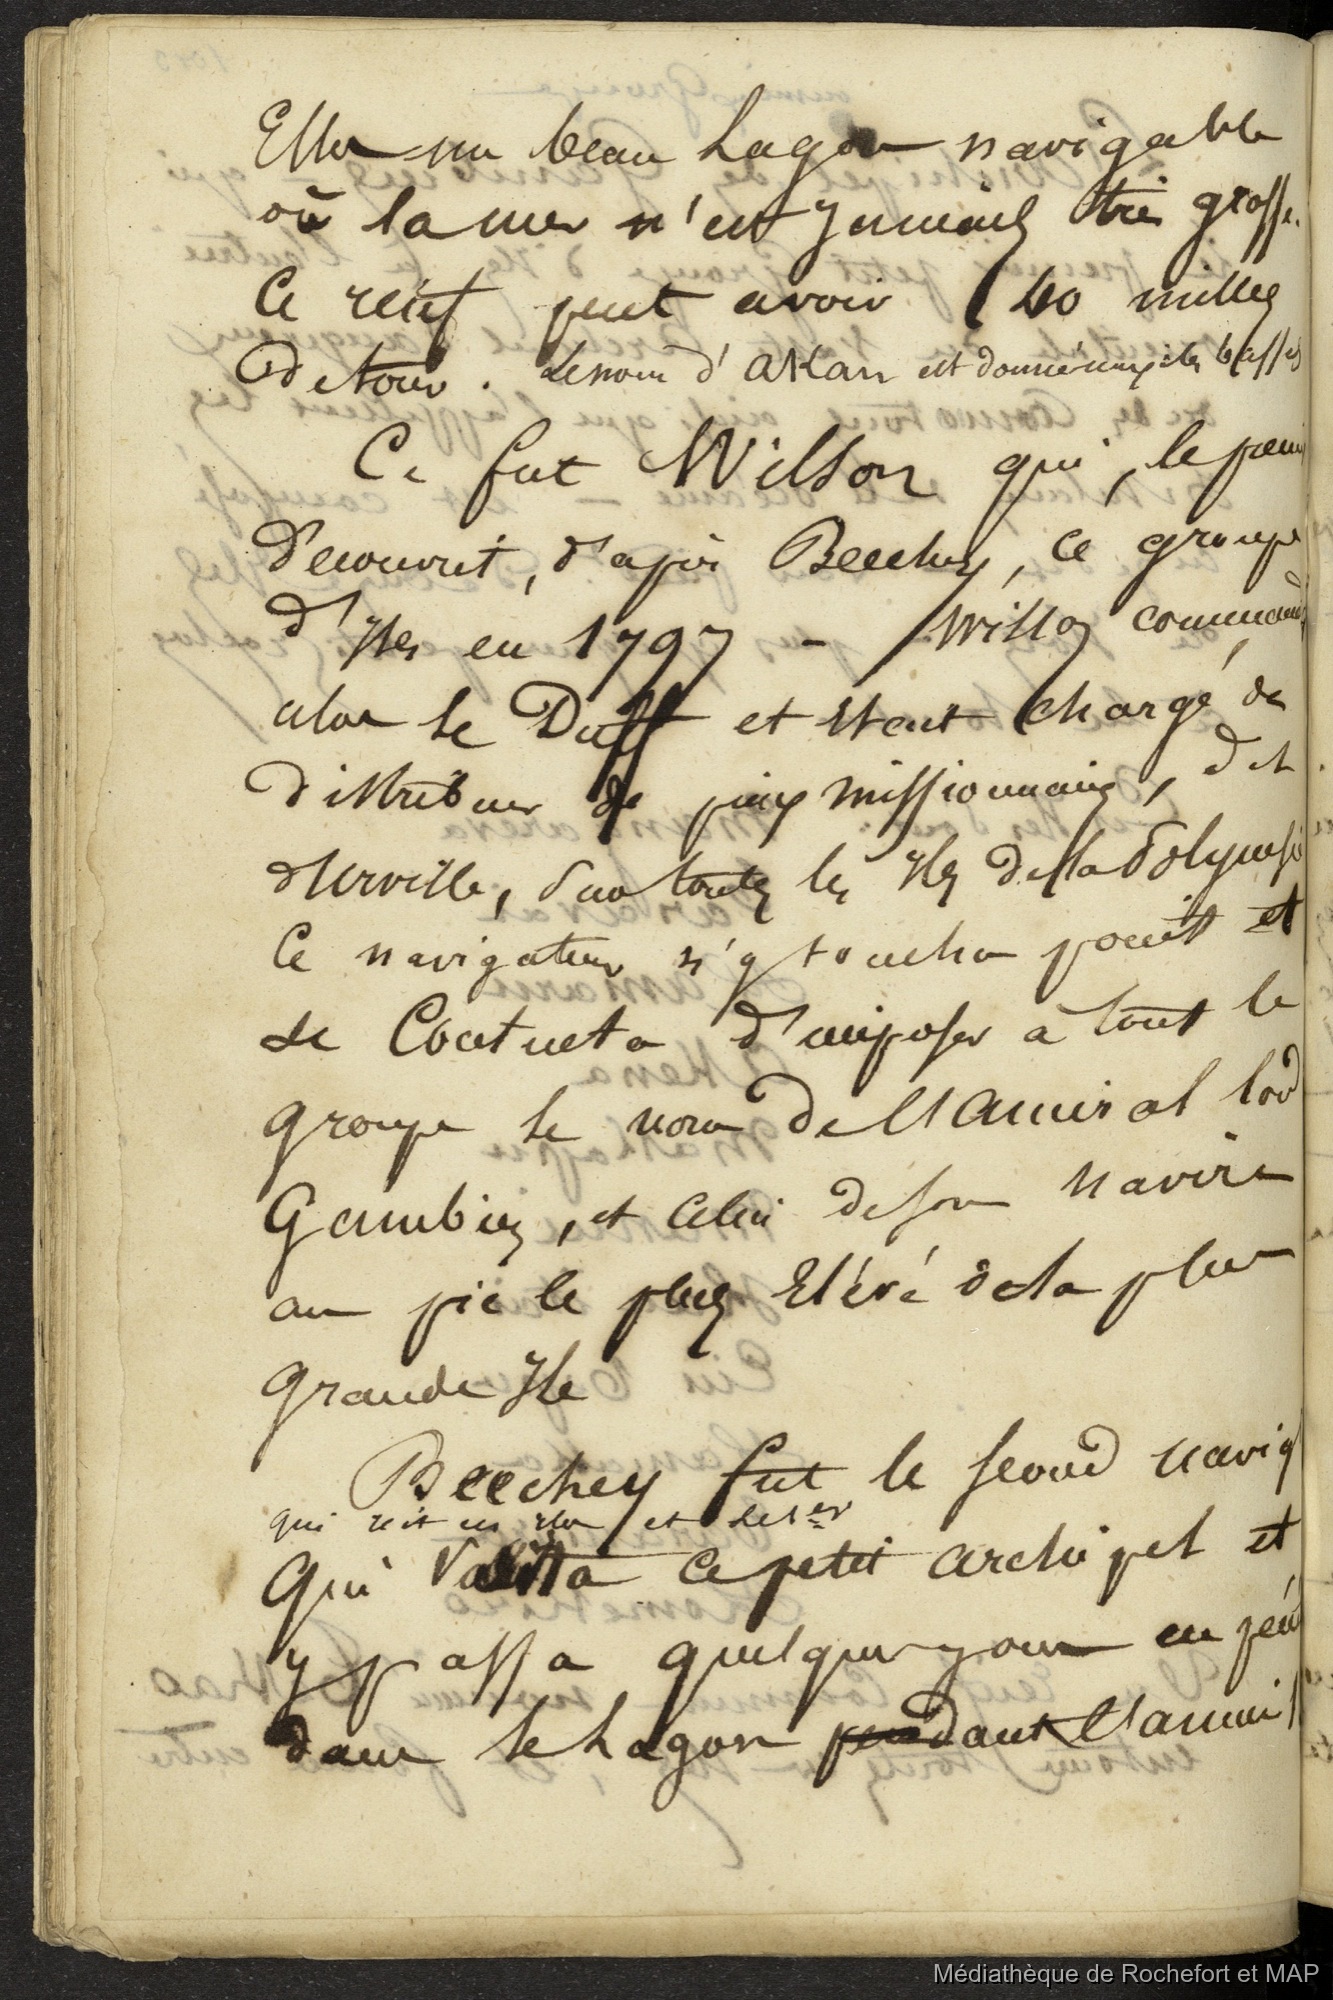 Elles un beau Lagon navigable
où la mer n'est Jamais très grosse.
Ce récif peut avoir 40 milles
De tour. Le nom d'AKan est donné aux îles basses
Ce fut Wilson qui, le premi
D'ecouvrit, d'après Beechey, ce groupe
d'Iles en 1797 - Wilson command
alors le Duff et Etait chargé de
distribuer de jeunes missionnaires, dit
dUrville, dans toutes les Iles De la Polynesie
Ce navigateur n'y toucha point et
se Contenta d'imposer à tout le
groupe le nom de l'Amiral lord
Gambier, et celui de son navire
au pic le plus Elévé de la plus
grande Ile
Beechey fut le second navig
qui vit ces Iles et le 1er
Qui Visita ce petit archipel et
y passa quelques jours en
dans le Lagon pendant l'anné